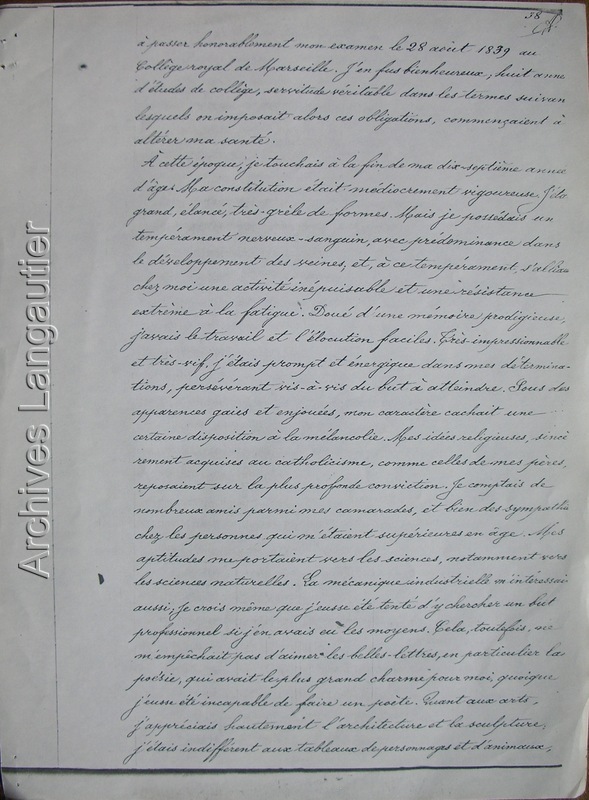 38
à passer honorablement mon examen le 28 août 1839 au
Collège royal de Marseille. J'en fus bienheureux, huit anné
d'études de collège, servitude véritable dans les termes suivan
lesquels on imposait alors ces obligations, commençaient à
altérer ma santé.
À cette époque, je touchais à la fin de ma dix-septième année
d'âge. Ma constitution était médiocrement vigoureuse. J'éta
grand, élancé, très-grêle de formes. Mais je possédais un
tempérament nerveux-sanguin, avec prédominance dans
le développement des veines, et, à ce tempérament, s'alliait
chez moi une activité inépuisable et une résistance
extrême à la fatigue. Doué d'une mémoire prodigieuse,
j'avais le travail et l'élocution faciles. Très-impressionnable
et très-vif, j'étais prompt et énergique dans mes détermina-
tions, persévérant vis-à-vis du but à atteindre. Sous des
apparences gaies et enjouées, mon caractère cachait une
certaine disposition à la mélancolie. Mes idées religieuses, sincè
rement acquises au catholicisme, comme celles de mes pères,
reposaient sur la plus profonde conviction. Je comptais de
nombreux amis parmi mes camarades, et bien des sympathies
chez les personnes qui m'étaient supérieures en âge. Mes
aptitudes me portaient vers les sciences, notamment vers
les sciences naturelles. La mécanique industrielle m'intéressait
aussi, je crois même que j'eusse été tenté d'y chercher un but
professionnel si j'en avais eu les moyens. Cela, toutefois, ne
m'empêchait pas d'aimer les belles-lettres, en particulier la
poésie, qui avait le plus grand charme pour moi, quoique
j'eusse été incapable de faire un poëte. Quant aux arts,
j'appréciais hautement l'architecture et la sculpture,
j'étais indifférent aux tableaux de personnages et d'animaux,
Archives Langautier